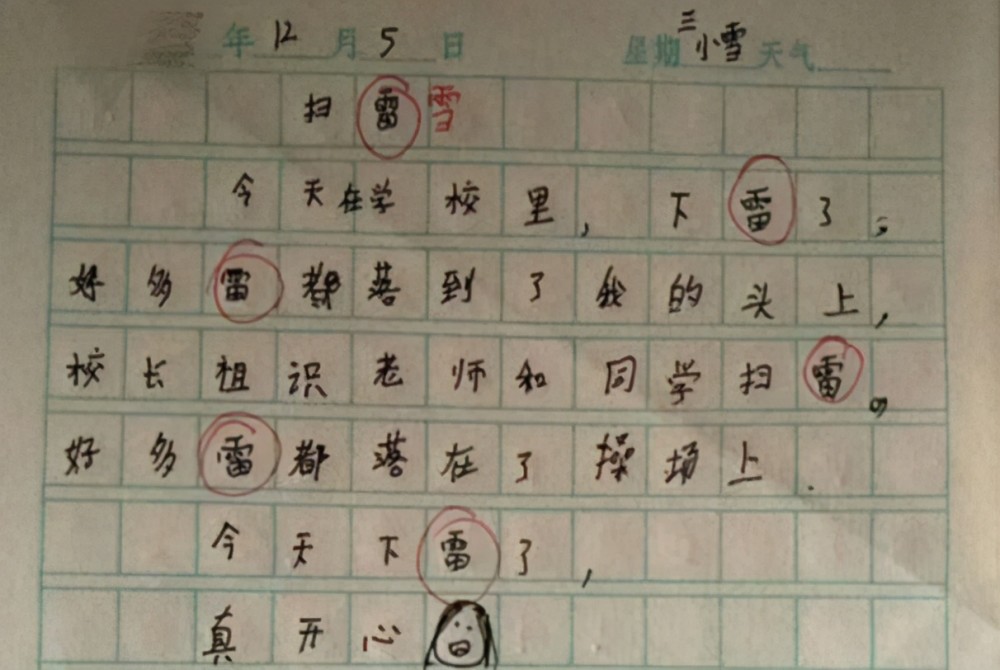 年12月5日 星期三 小雪天气
扫雷雪
今天在学校里，下雷了，
好多雷都落到了我的头上，
校长祖识老师和同学扫雷。
好多雷都落在了操场上.
今天下雷了，
真开心